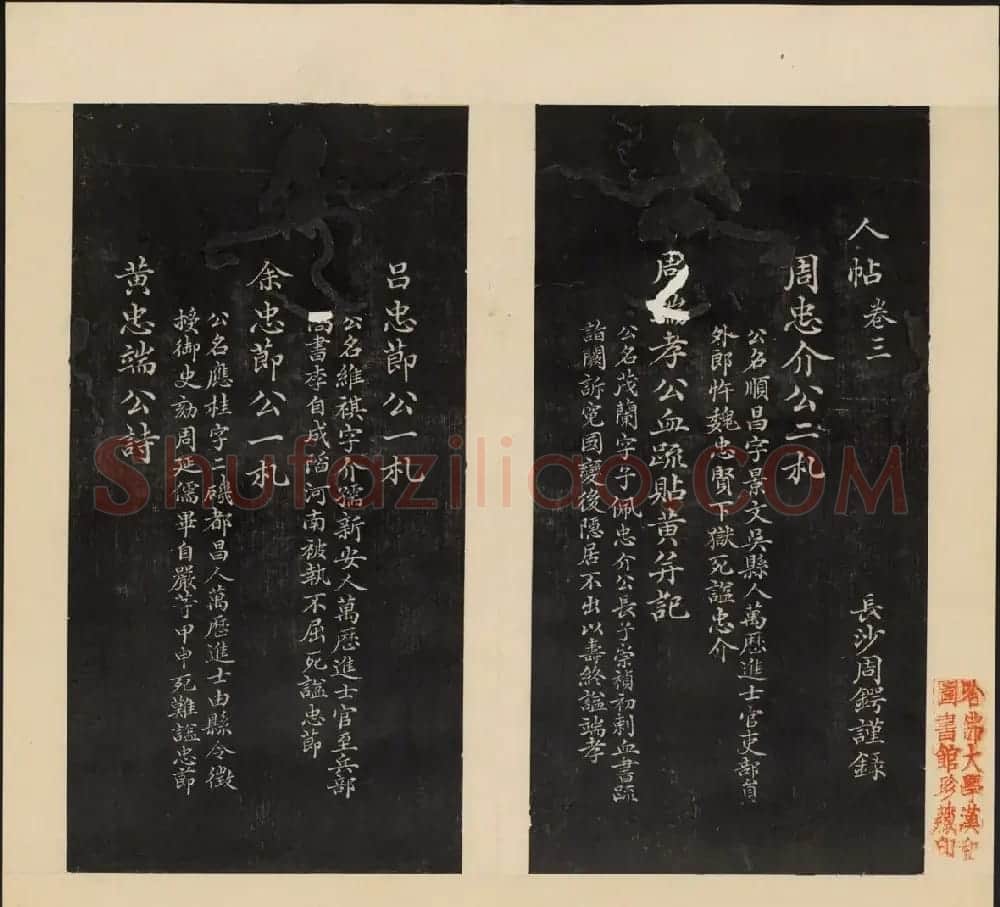 人帖 卷三 長沙周鍔謹錄
周忠介公二札
公名順昌字景文吳縣人萬歷進士官吏部員
外郎忤魏忠賢下獄死諡忠介
周 孝公血疏貼黃并記
公名茂蘭字子佩忠介公長子崇禎初刺血書疏
詣闕訴寃國變後隱居不出以壽終諡端孝
呂忠節公一札
公名維祺字介孺新安人萬歷進士官至兵部
尚書李自成陷河南被執不屈死諡忠節
余忠節公一札
公名應桂字二磯都昌人萬歷進士由縣令徵
授御史劾周延儒畢自嚴等甲申死難諡忠節
黃忠端公詩
哈佛大學漢和
圖書館珍藏印
Shufaziliao.COM